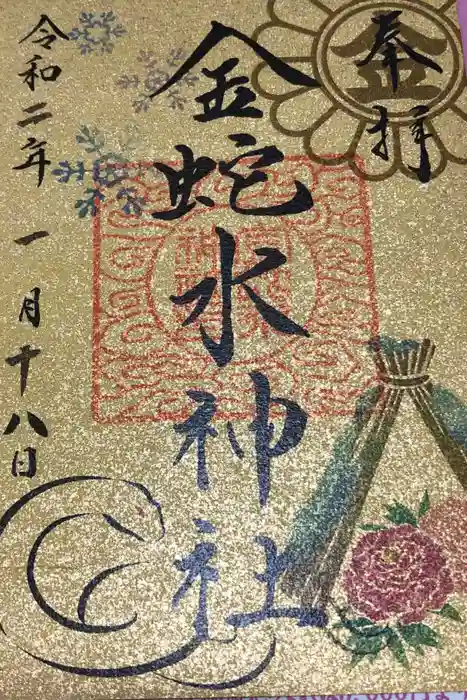 奉拝
金
金蛇水神社
令和二年一月十八日